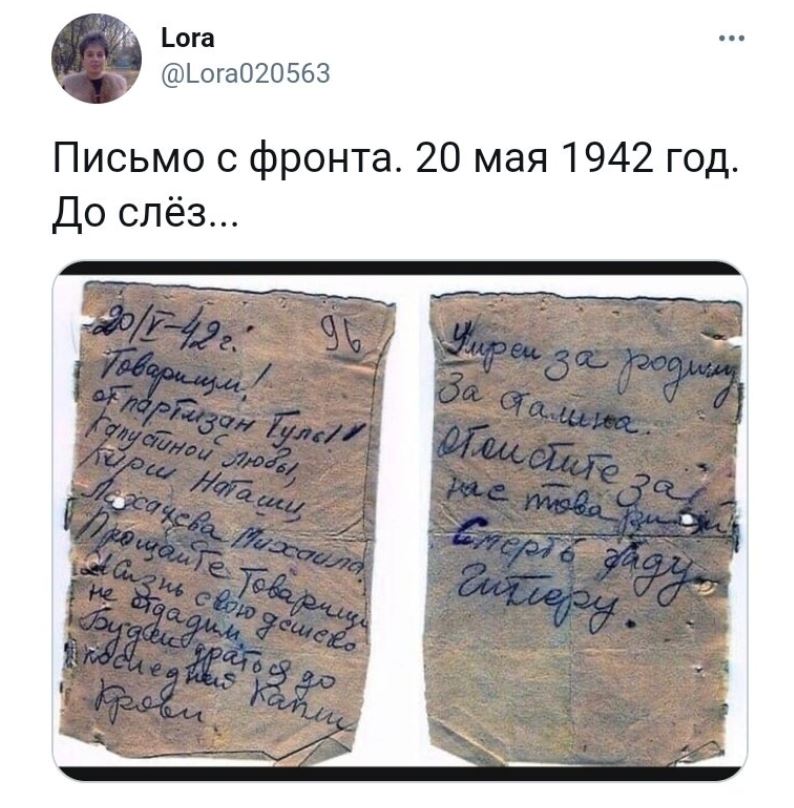 Lora
@Lora020563
Письмо с фронта. 20 мая 1942 год.
До слёз...
20/V-42 г. 96
Товарищи!
от партизан Тулы!
Капустиной Любы,
Кирш Наташи,
Лихачева Михаила.
Прощайте Товарищи
Жизнь свою дешево
не отдадим.
Будем драться до
последней Капли
Крови
Умрем за родину
За Сталина.
Отомстите за
нас товарищи.
Смерть гаду
Гитлеру.